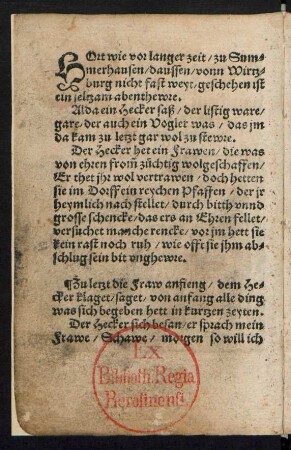 HOrt wie vor langer zeit / zu Sum-
merhausen / daussen / vonn Wirtz-
burg nicht fast weyt / geschehen ist
ein seltzam abenthewre.
Alda ein Hecker saß / der listig ware /
gare / der auch ein Vogler was / das jm
da kam zu letzt gar wol zu stewre.
Der Hecker het ein Frawen / die was
von ehren from̃ züchtig wolgeschaffen /
Er thet jhr wol vertrawen / doch hetten
sie im Dorff ein reychen Pfaffen / der jr
heymlich nach stellet / durch bitth vnnd
grosse schencke / das ers an Ehren fellet /
versuchet manche rencke / vor jm hett sie
kein rast noch ruh / wie offt sie jhm ab-
schlug sein bit vnghewre.
¶Zu letzt die Fraw anfieng / dem He-
cker klaget / saget / von anfang alle ding
was sich begeben hett in kurtzen zeyten.
Der Hecker sich besan / er sprach mein
Frawe / Schawe / morgen so will ich
Ex
Biblioth. Regia
Berolinensi.